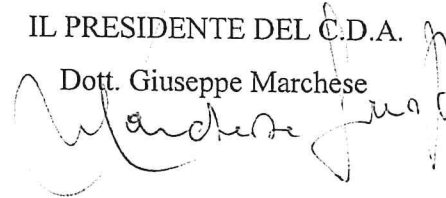 IL PRESIDENTE DEL C.D.A.
Dott. Giuseppe Marchese
Marchese